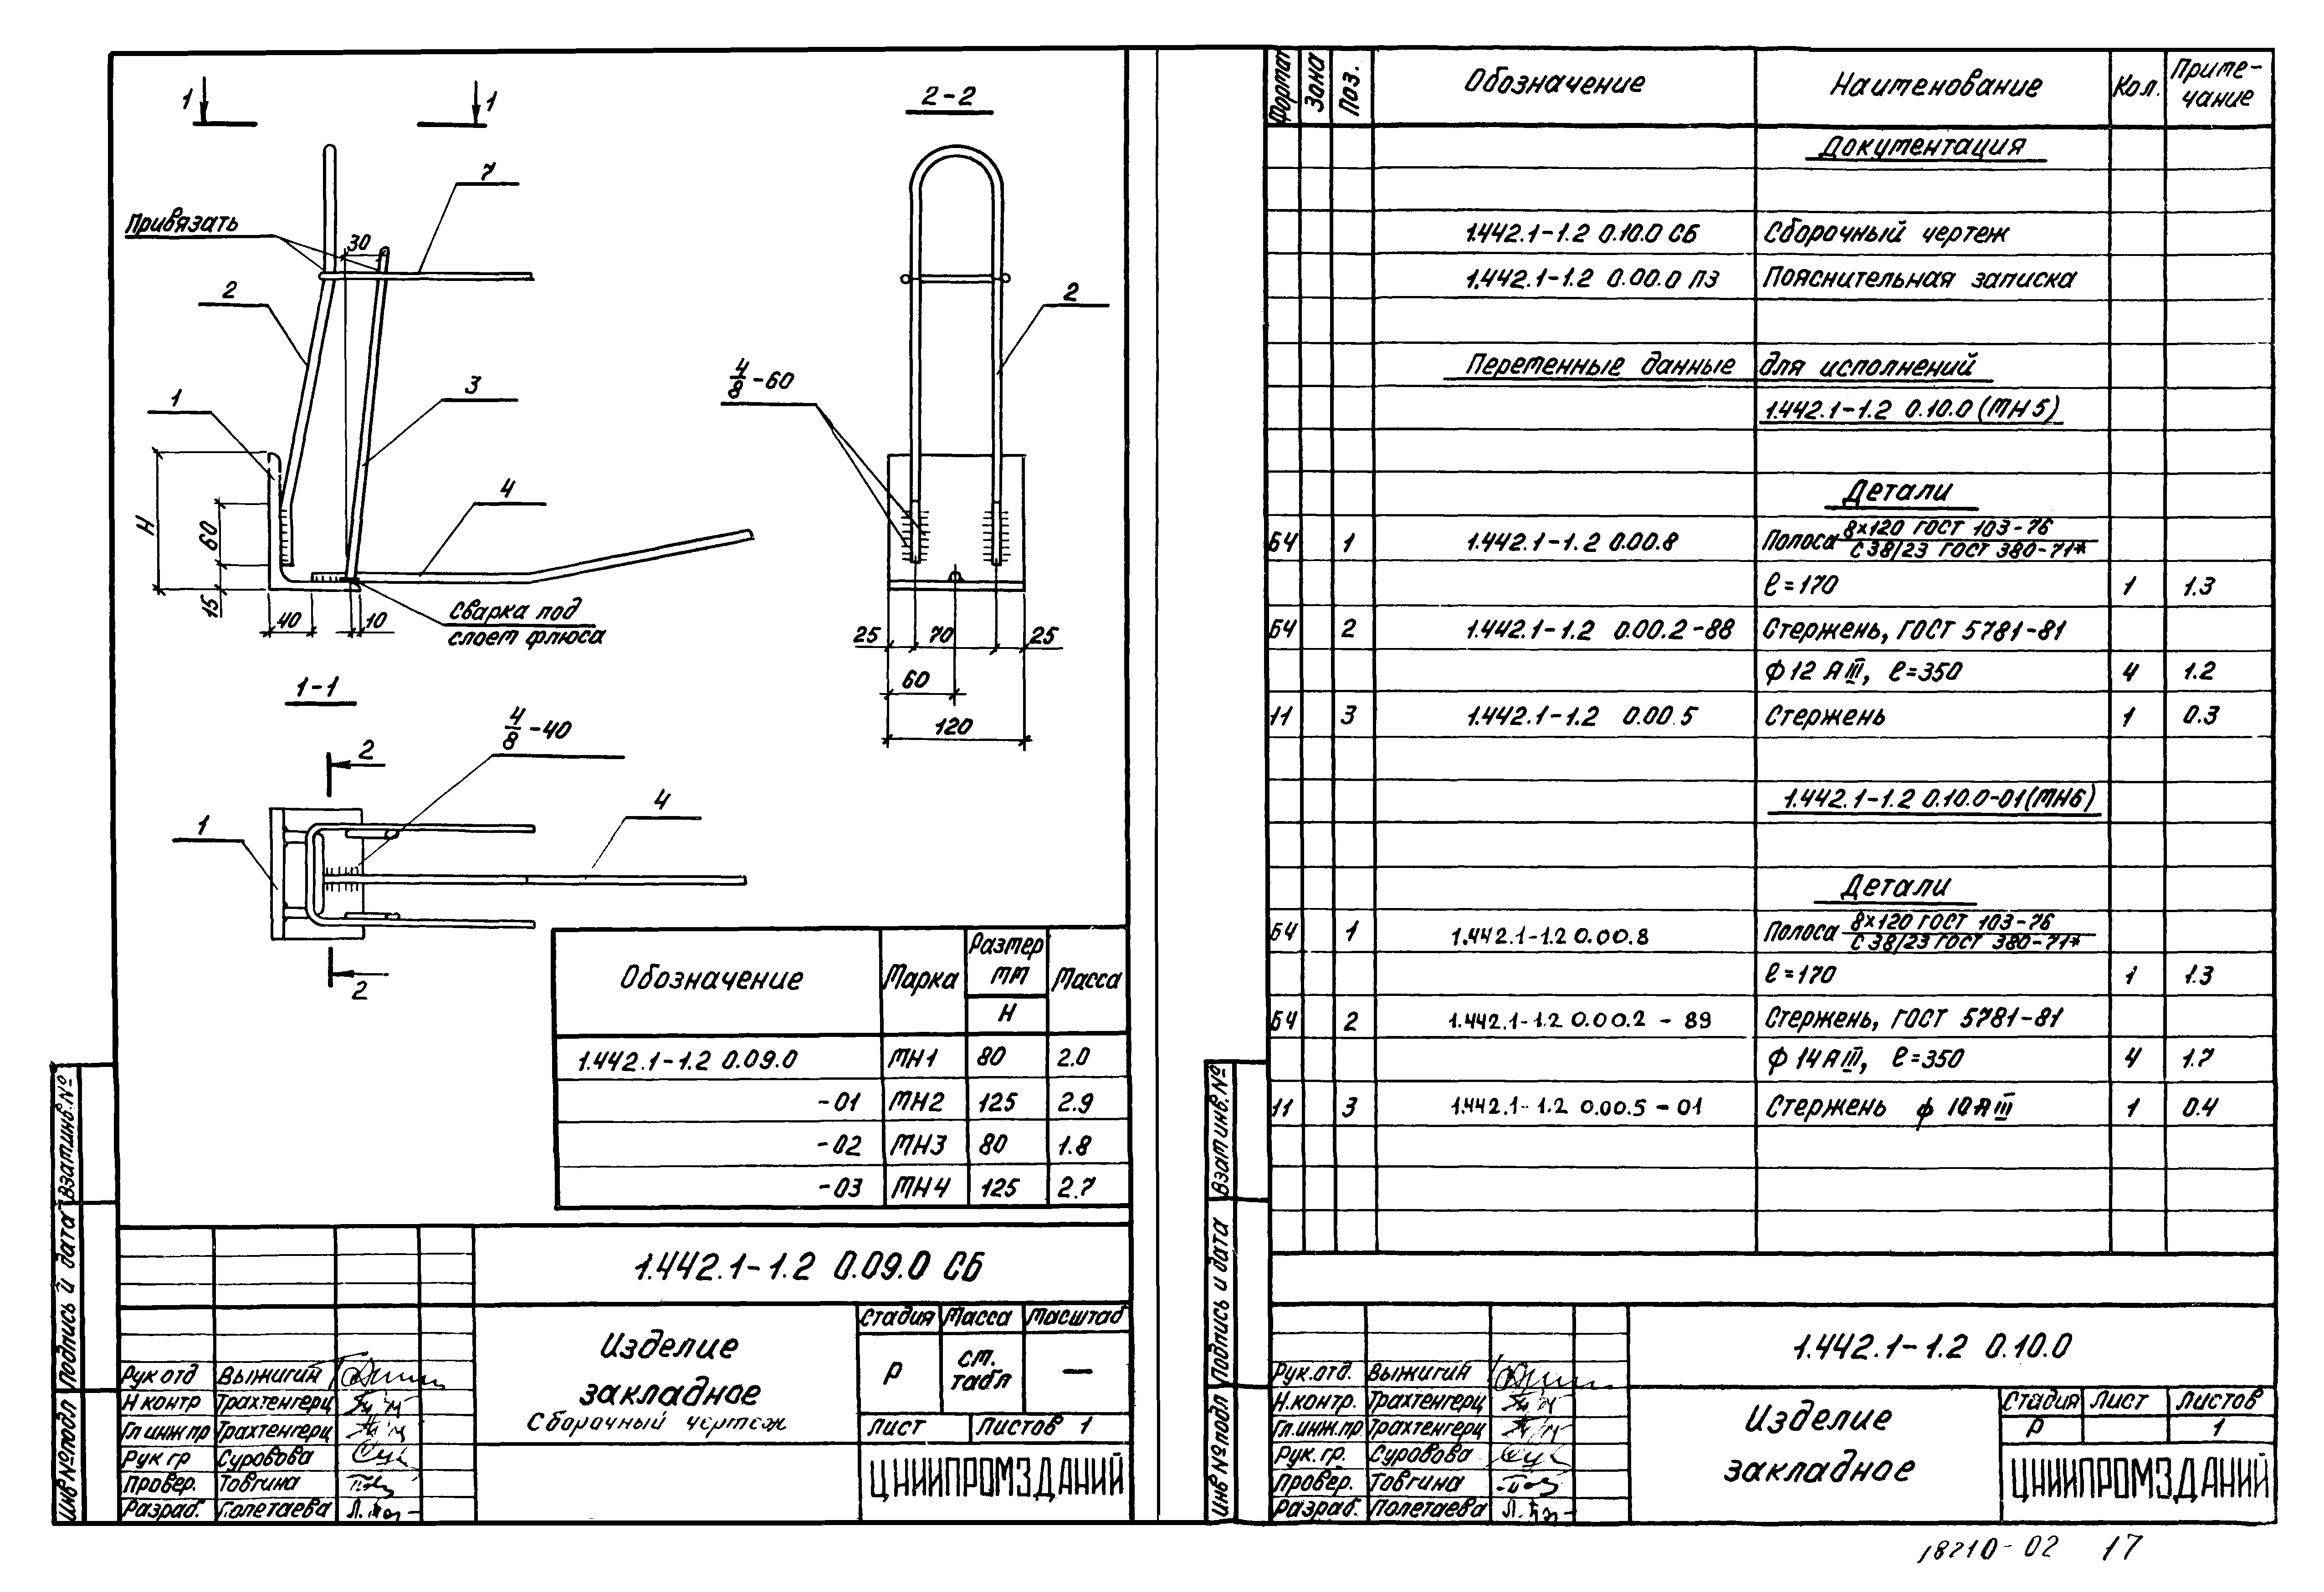 1 1
7
Привязать
30
2
1
3
4
H
60
15
40
10
Сварка под
слоем флюса
2-2
2
4/8-60
25 70 25
60
120
1-1
2
4/8-40
4
1
2
Обозначение Марка Размер мм Масса
H
1.442.1-1.2 0.09.0 МН1 80 2.0
-01 МН2 125 2.9
-02 МН3 80 1.8
-03 МН4 125 2.7
1.442.1-1.2 0.09.0 СБ
Изделие
закладное
Сборочный чертеж
Стадия Масса Масштаб
Р см. табл —
Лист Листов 1
ЦНИИПРОМЗДАНИЙ
Рук.отд Выжигин
Н контр Трахтенгерц
Гл инж пр Трахтенгерц
Рук гр Суровова
Провер. Товгина
Разраб. Полетаева
Взам инв. №
Подпись и дата
Инв № подл
Формат Зона Поз. Обозначение Наименование Кол. Приме-
чание
Документация
1.442.1-1.2 0.10.0 СБ Сборочный чертеж
1.442.1-1.2 0.00.0 ПЗ Пояснительная записка
Переменные данные для исполнений
1.442.1-1.2 0.10.0 (МН5)
Детали
Б4 1 1.442.1-1.2 0.00.8 Полоса 8×120 ГОСТ 103-76
С38/23 ГОСТ 380-71*
ℓ=170 1 1.3
Б4 2 1.442.1-1.2 0.00.2-88 Стержень, ГОСТ 5781-81
ф12 АIII, ℓ=350 4 1.2
11 3 1.442.1-1.2 0.00.5 Стержень 1 0.3
1.442.1-1.2 0.10.0-01(МН6)
Детали
Б4 1 1.442.1-1.2 0.00.8 Полоса 8×120 ГОСТ 103-76
С38/23 ГОСТ 380-71*
ℓ=170 1 1.3
Б4 2 1.442.1-1.2 0.00.2-89 Стержень, ГОСТ 5781-81
ф14 АIII, ℓ=350 4 1.7
11 3 1.442.1-1.2 0.00.5-01 Стержень ф 10АIII 1 0.4
1.442.1-1.2 0.10.0
Изделие
закладное
Стадия Лист Листов
Р 1
ЦНИИПРОМЗДАНИЙ
Рук.отд. Выжигин
Н.контр. Трахтенгерц
Гл.инж.пр Трахтенгерц
Рук.гр. Суровова
Провер. Товгина
Разраб. Полетаева
Взам инв. №
Подпись и дата
Инв № подл
18210-02 17